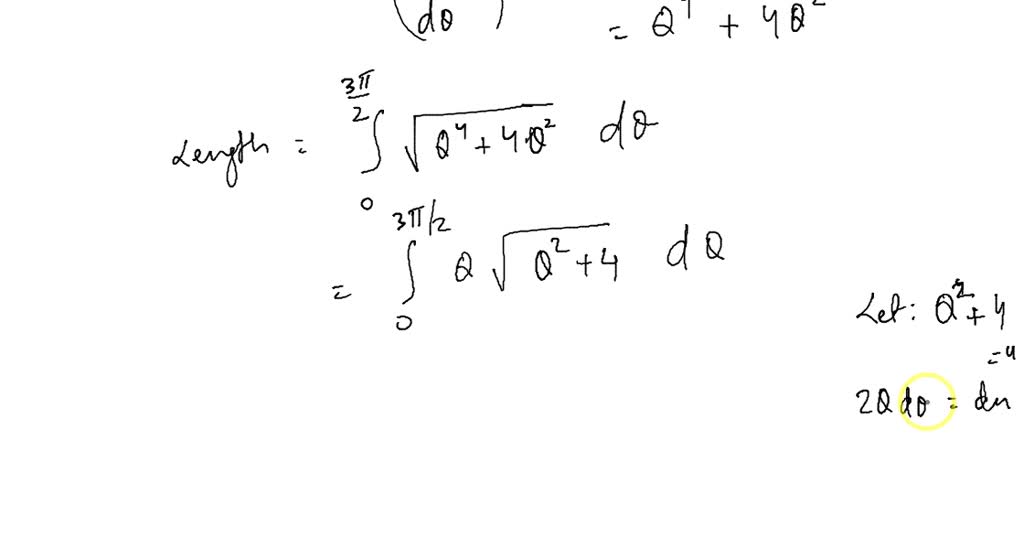 (dθ) = θ⁴ + 4θ²
3π/2
Length = ∫ √θ⁴ + 4θ² dθ
0
3π/2
= ∫ θ √θ² + 4 dθ
0
Let: θ² + 4
= u
2θ dθ = du